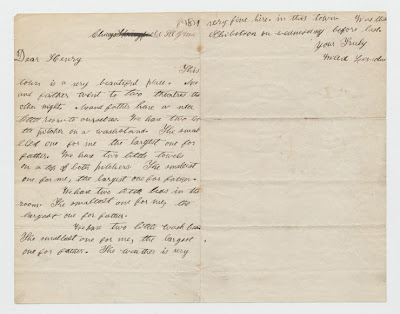 Dear Henry
This
town is a very beautiful place. Me
and father went to two theatres the
other night. Me and father have a nice
little room to ourselves. We have two
pitcher on a washstand. The small
one for me the largest one for
father. We have two little towels
on top of both pitchers. The smallest
one for me, the largest one for father.
We have two little beds in the
room. The smallest one for me, the
largest one for father.
We have two little wash
The smallest one for me, the largest
one for father. The weather is very
very fine here in this town.
on wednesday before last.
Your Truly